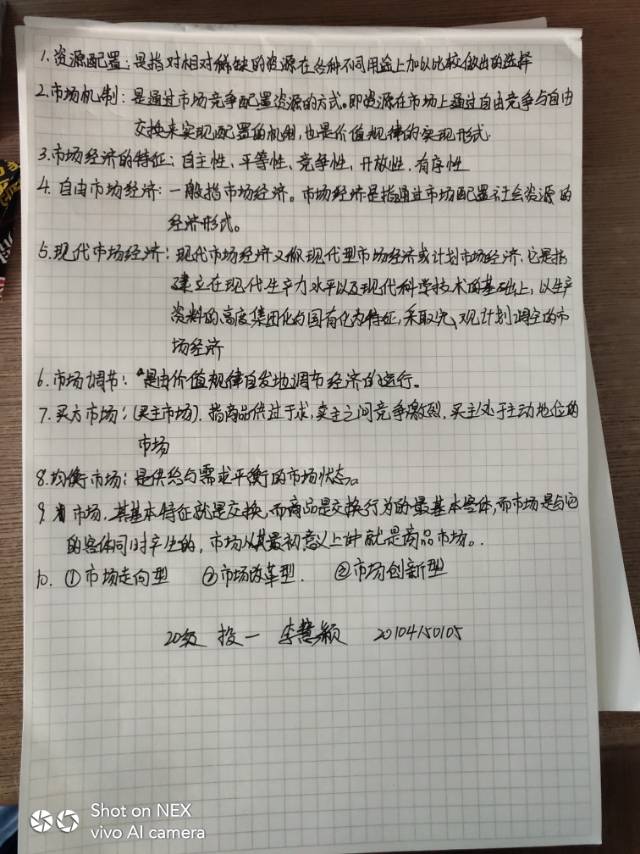 1.资源配置:是指对相对稀缺的资源在各种不同用途上加以比较做出的选择
2.市场机制:是通过市场竞争配置资源的方式。即资源在市场上通过自由竞争与自由
交换来实现配置的机制,也是价值规律的实现形式
3.市场经济的特征:自主性、平等性、竞争性、开放性、有序性
4.自由市场经济:一般指市场经济。市场经济是指通过市场配置社会资源的
经济形式。
5.现代市场经济:现代市场经济又称现代型市场经济或计划市场经济,它是指
建立在现代生产力水平以及现代科学技术的基础上,以生产
资料的高度集团化与国有化为特征,采取宏观计划调控的市
场经济
6.市场调节:是由价值规律自发地调节经济的运行。
7.买方市场:(买主市场).指商品供过于求,卖主之间竞争激烈,买主处于主动地位的
市场
8.均衡市场:是供给与需求平衡的市场状态。
9.市场,其基本特征就是交换,而商品是交换行为的最基本客体,而市场是与它
的客体同时产生的,市场从其最初意义上讲就是商品市场。
10. ①市场走向型 ②市场改革型. ③市场创新型
20级 投一 李慧颖 20104150105
Shot on NEX
vivo AI camera